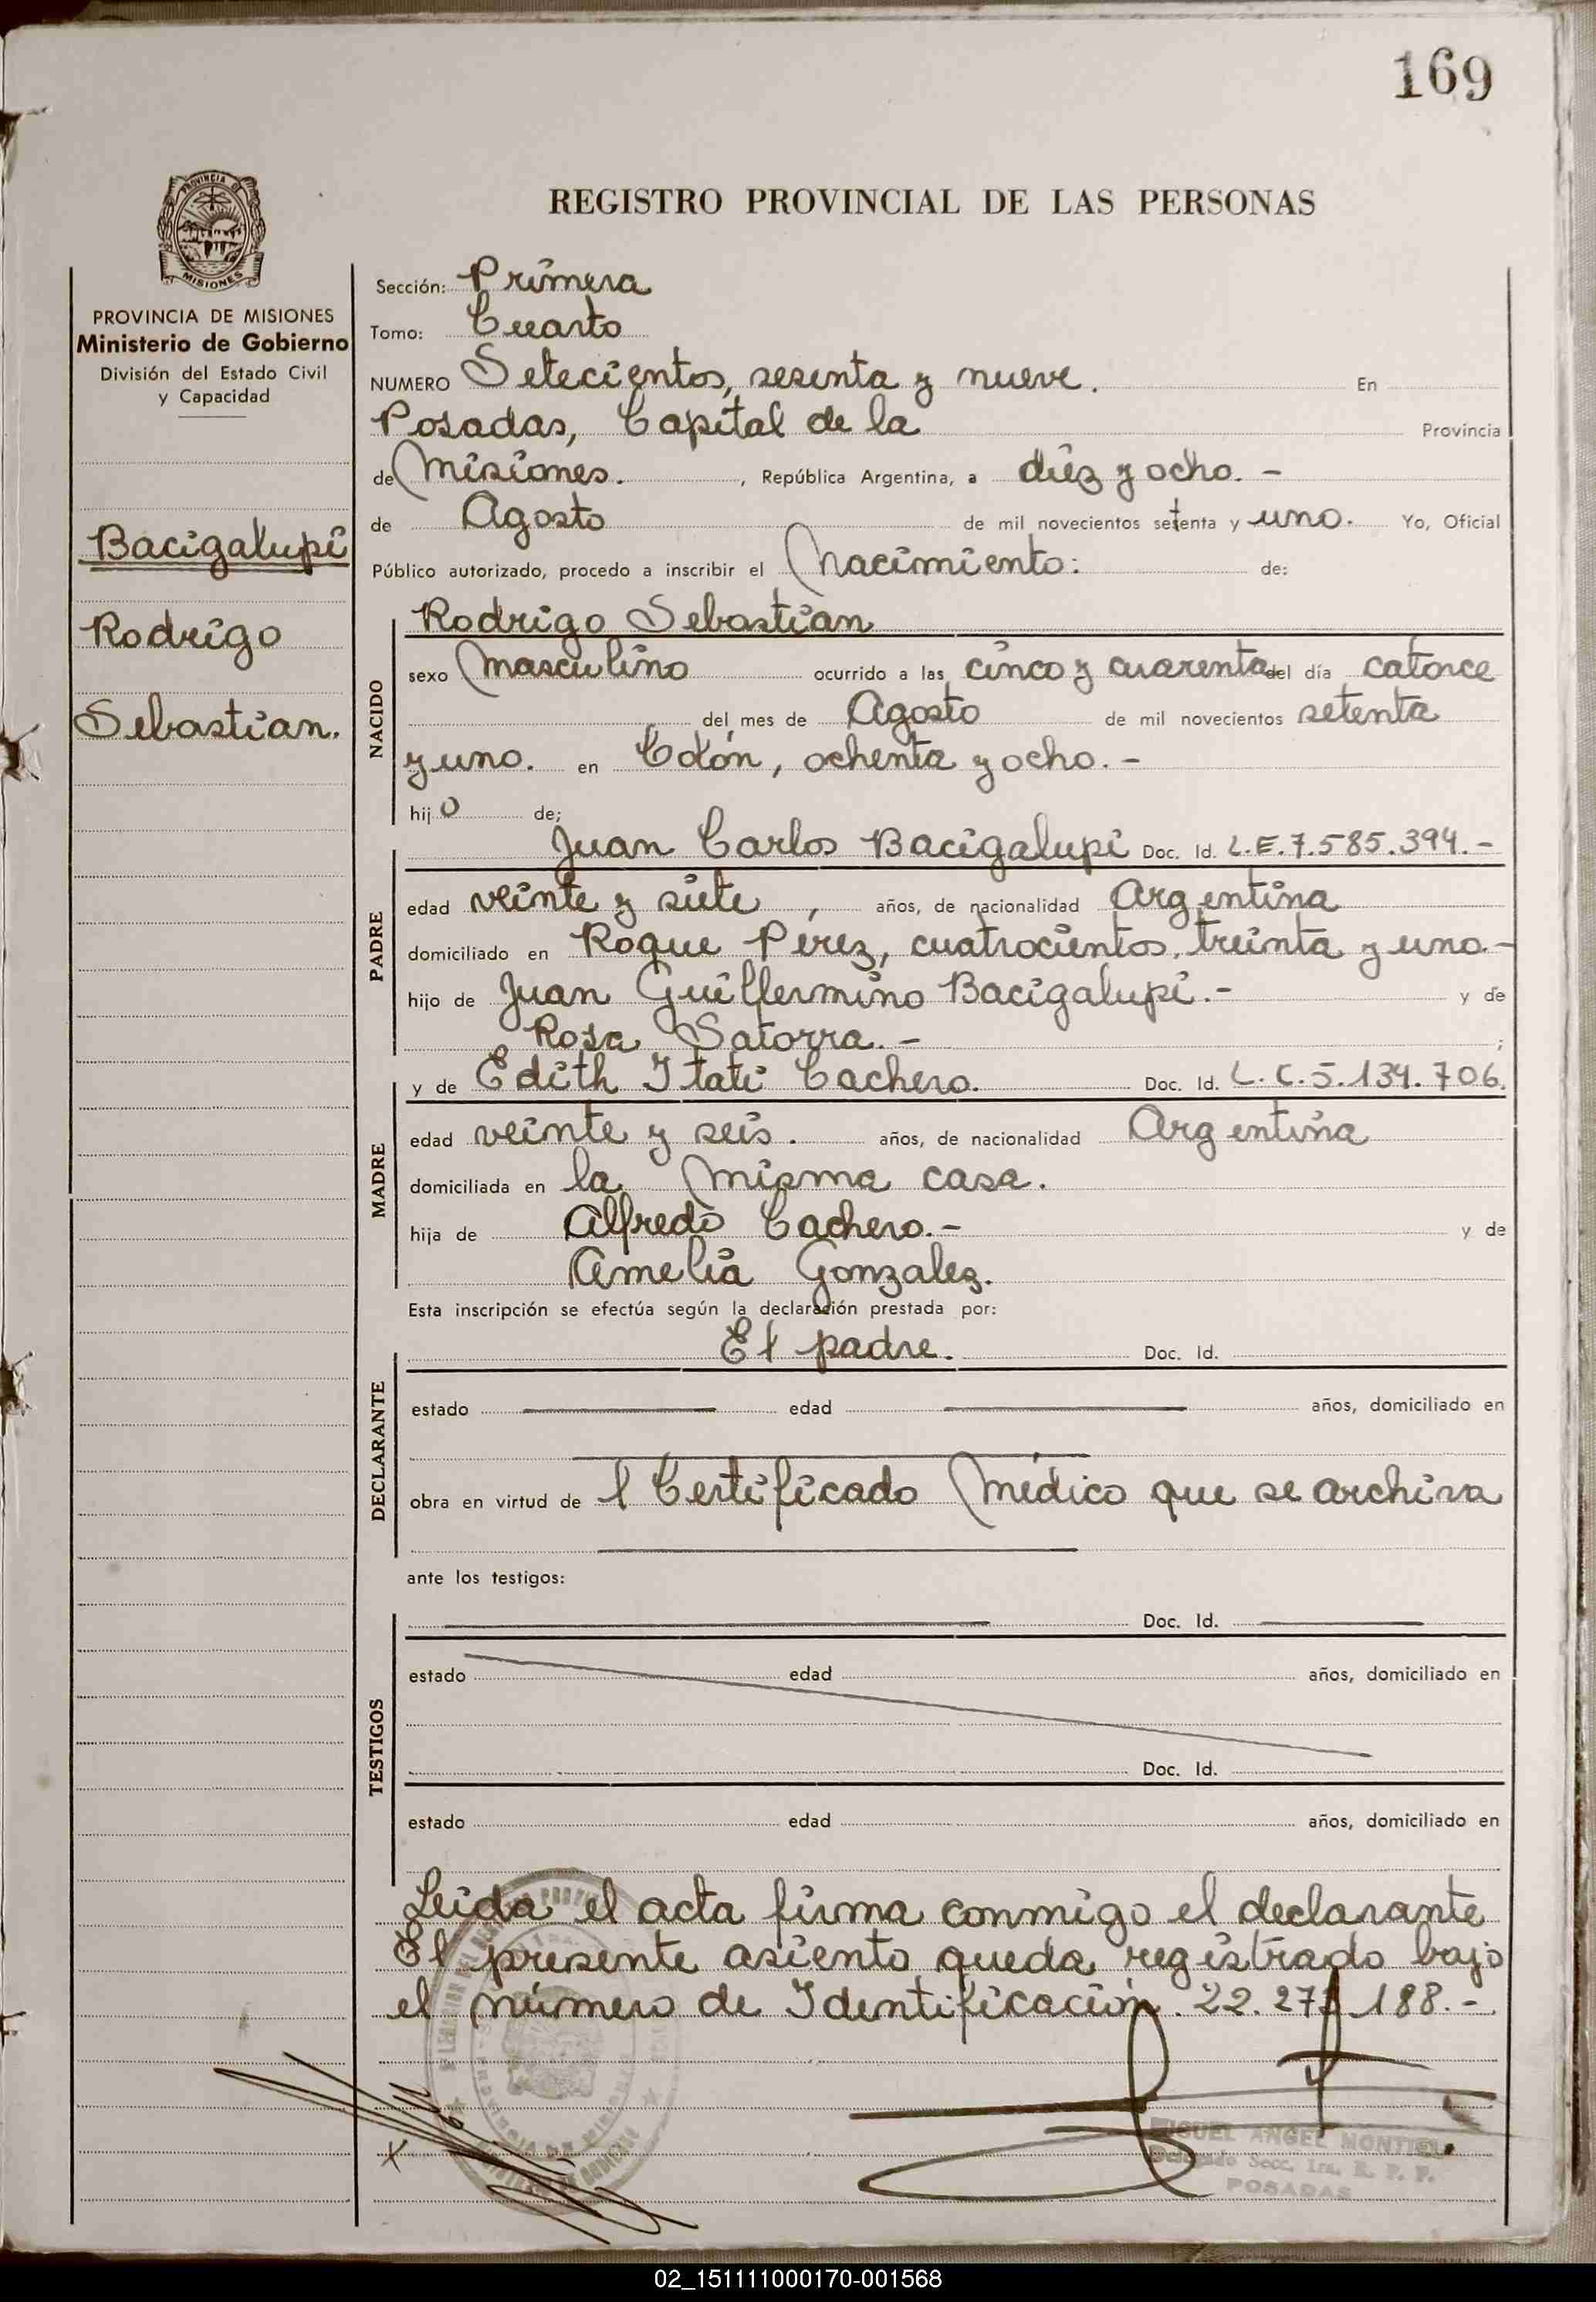 169
PROVINCIA DE
MISIONES
REGISTRO PROVINCIAL DE LAS PERSONAS
PROVINCIA DE MISIONES
Ministerio de Gobierno
División del Estado Civil
y Capacidad
Bacigalupi
Rodrigo
Sebastian.
Sección: Primera
Tomo: Cuarto
NUMERO Setecientos, sesenta y nueve. En
Posadas, Capital de la Provincia
de Misiones. , República Argentina, a diez y ocho. -
de Agosto de mil novecientos setenta y uno. Yo, Oficial
Público autorizado, procedo a inscribir el Nacimiento: de:
NACIDO
Rodrigo Sebastian
sexo Masculino ocurrido a las cinco y cuarenta del día catorce
del mes de Agosto de mil novecientos setenta
y uno. en Colón, ochenta y ocho. -
hijo de;
PADRE
Juan Carlos Bacigalupi Doc. Id. L.E.7.585.394.-
edad veinte y siete , años, de nacionalidad Argentina
domiciliado en Roque Pérez, cuatrocientos, treinta y uno-
hijo de Juan Guillermino Bacigalupi.- y de
Rosa Satorra.- ;
MADRE
y de Edith Itati Cachero. Doc. Id. L.C.5.134.706.
edad veinte y seis. años, de nacionalidad Argentina
domiciliada en la Misma casa.
hija de Alfredo Cachero.- y de
Amelia Gonzalez.
Esta inscripción se efectúa según la declaración prestada por:
DECLARANTE
El padre. Doc. Id.
estado edad años, domiciliado en
obra en virtud de l Certificado Médico que se archiva
ante los testigos:
TESTIGOS
Doc. Id.
estado edad años, domiciliado en
Doc. Id.
estado edad años, domiciliado en
Leida el acta firma conmigo el declarante
El presente asiento queda registrado bajo
el número de Identificación. 22. 188.-
MIGUEL ANGEL MONTIEL
Delegado Secc. 1ra. R. P. P.
POSADAS
02_151111000170-001568